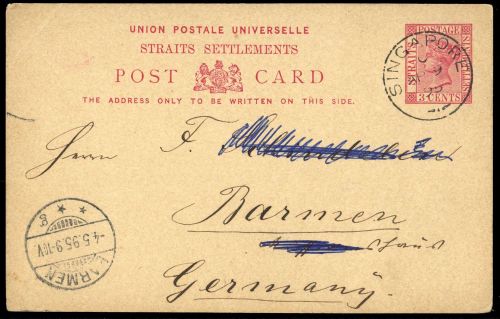 UNION POSTALE UNIVERSELLE
STRAITS SETTLEMENTS
POST CARD
THE ADDRESS ONLY TO BE WRITTEN ON THIS SIDE.
POSTAGE
STRAITS SETTLEMENTS
3 CENTS
SINGAPORE
Herrn F.
Barmen
Germany.
BARMEN
-4.5.95.9-10V.